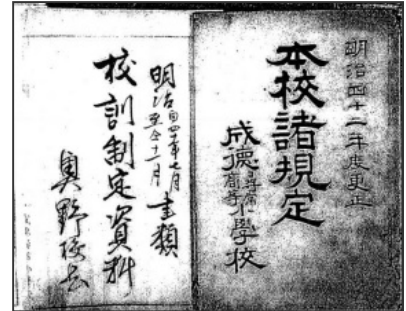 明治四十二年度更正
本校諸規定
成徳尋常高等小學校
明治自四十年七月至仝十一月書類
校訓制定資料
奥野校長